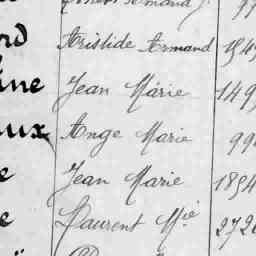 rd Aristide Armand
ine Jean Marie 149
aux Ange Marie 99
e Jean Marie 1894
e Laurent Mie 272